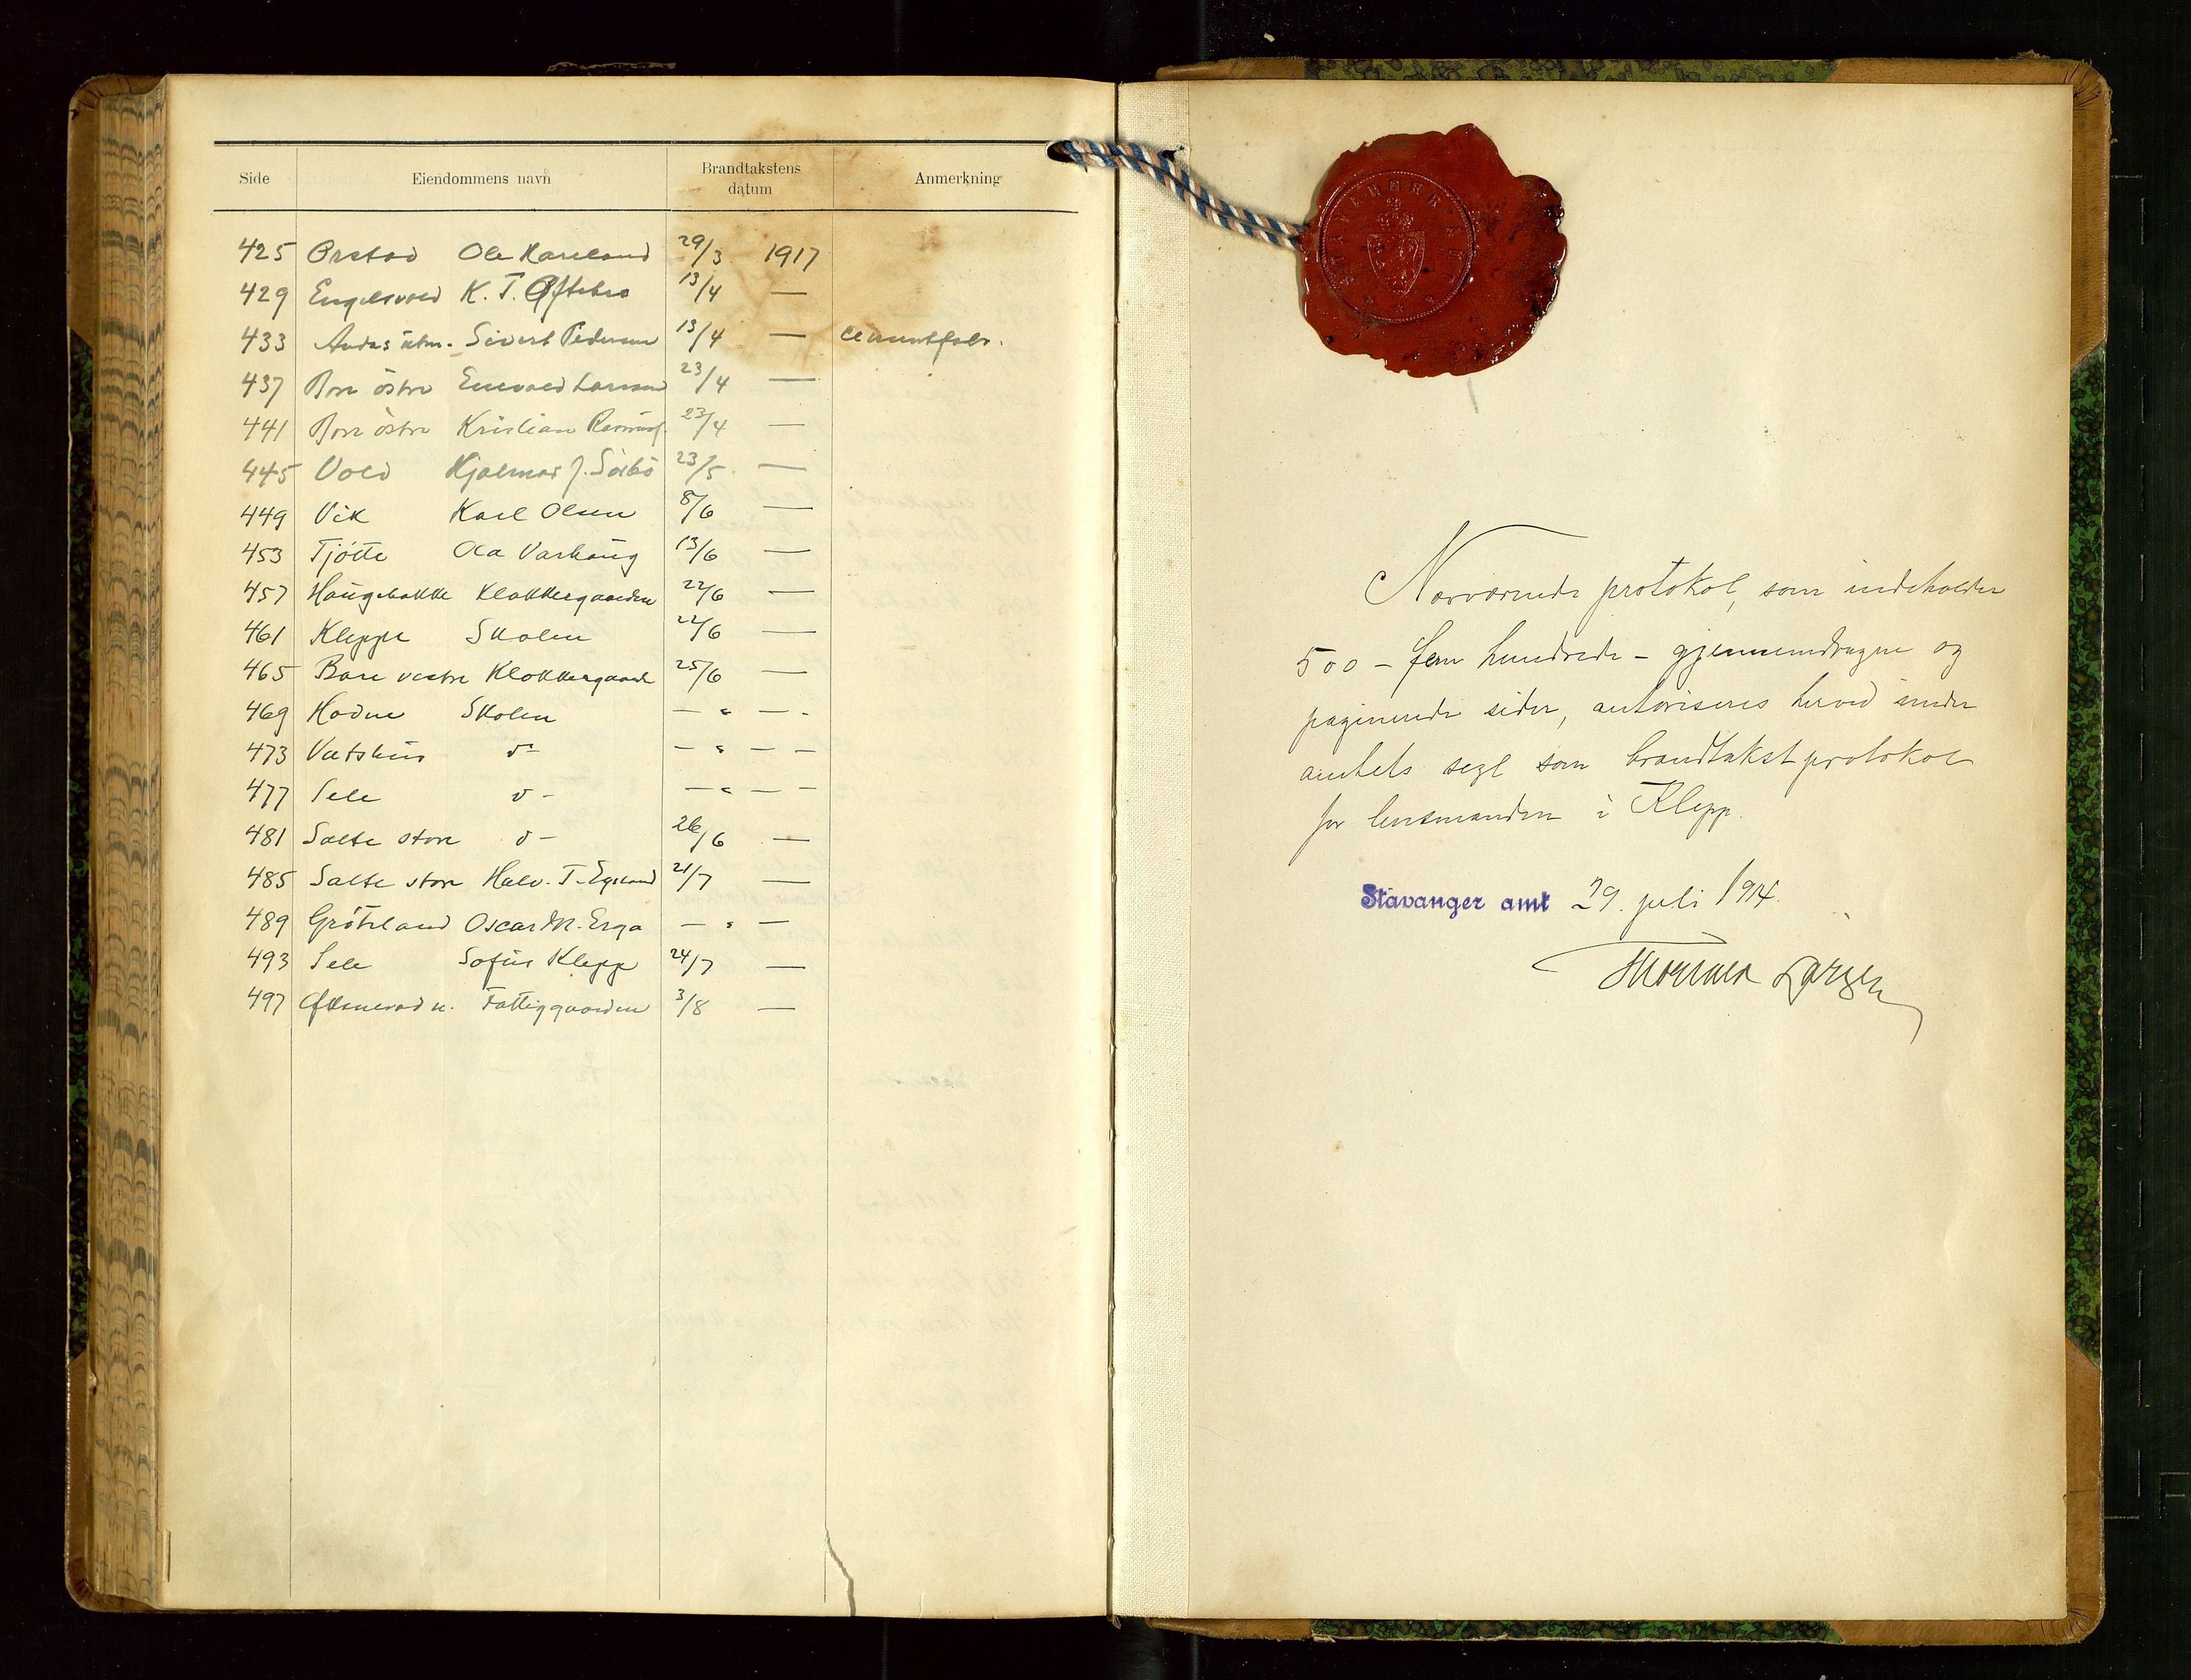 Side Eiendommens navn Brandtakstens datum Anmerkning
425 Orstad Ole Haaland 29/3 1917
429 Engelsvold K. T. Oftebro 13/4 —
433 Sivert Pedersen 13/4 — cementfabr.
437 Bore östre Enevald Larsen 23/4 —
441 Bore östre Kristian Rasmus. 23/4 —
445 Vold Hjalmar J. Sörbö 23/5 —
449 Vik Karl Olsen 8/6 —
453 Tjötte Ola Varhaug 13/6 —
457 Haugebakke Klokkergaarden 22/6 —
461 Kleppe Skolen 22/6 —
465 Bore vestre Klokkergaard 25/6 —
469 Hodne Skolen — " — -
473 Vatshus do — " — —
477 Sele do - — " — —
481 Salte store do — 26/6 —
485 Salte store Halv. T. Egeland 21/7 —
489 Gröteland Oscar M. Erga — " —
493 Sele Sofus Klepp 24/7 —
497 Öksnevad n. Fattiggaarden 3/8 —
STAVANGER AMT
Nærværende protokol, som indeholder
500 – fem hundrede – gjennemdragne og
paginerede sider, autoriseres herved under
amtets segl som brandtakstprotokol
for lensmanden i Klepp.
Stavanger amt 29. juli 1914.
Thorvald Larsen